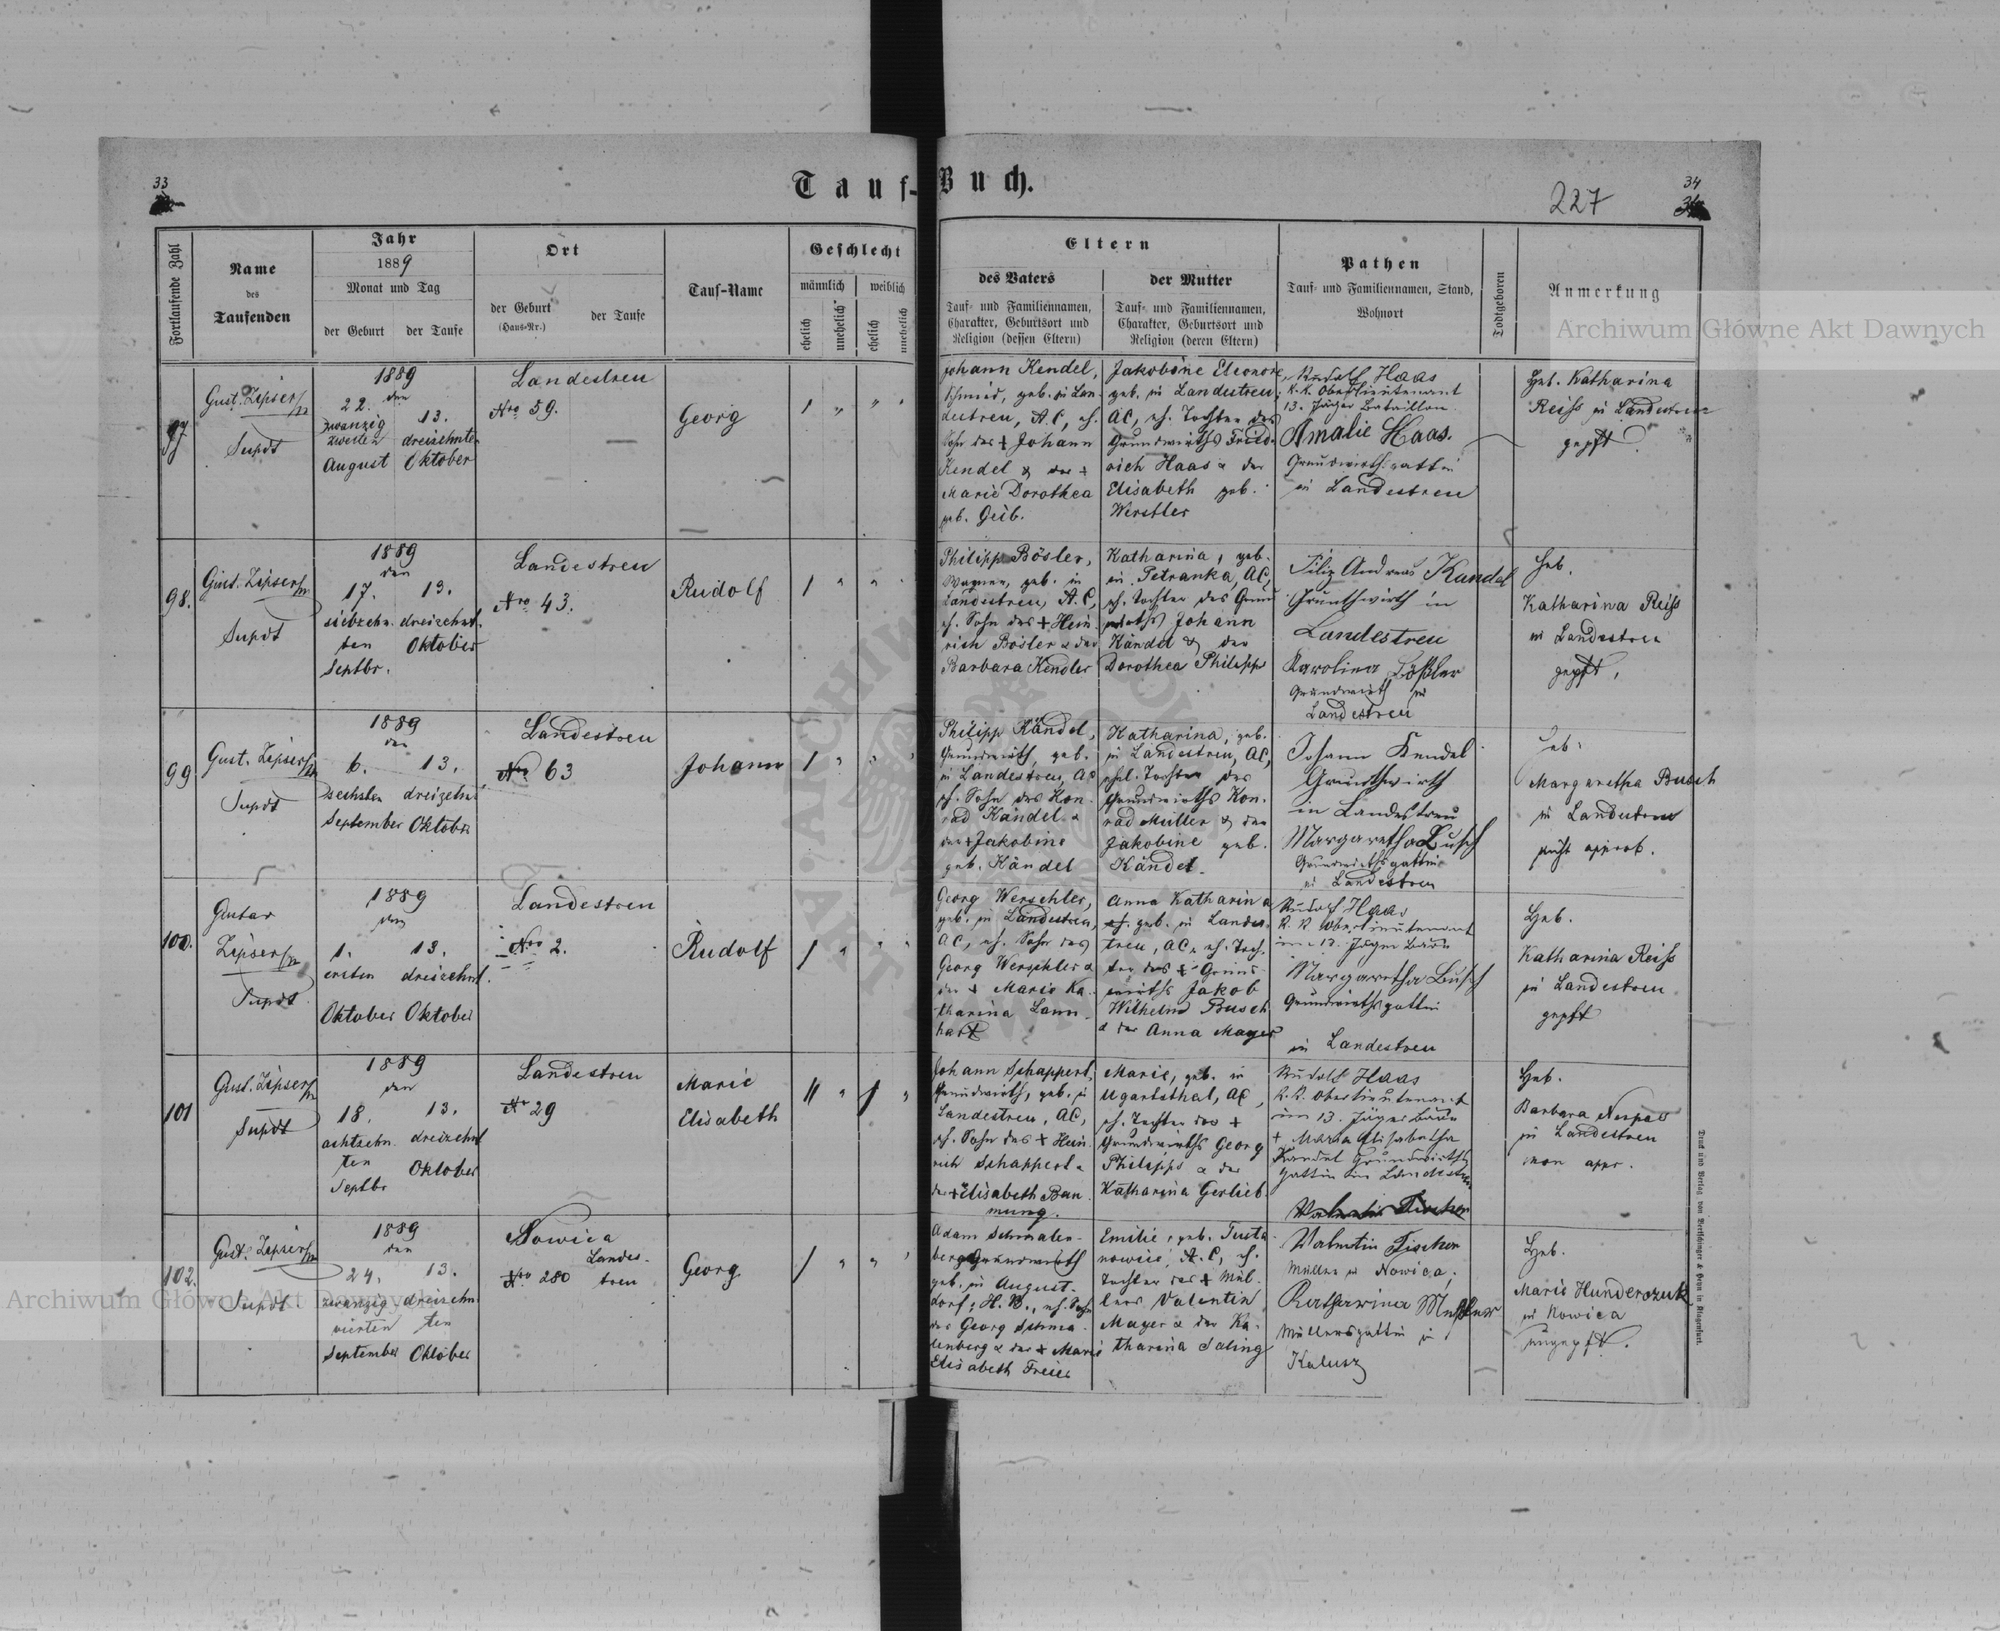 33
Tauf-Buch.
227
34
Fortlaufende Zahl
Name
des
Taufenden
Jahr
1889
Monat und Tag
der Geburt
der Taufe
Ort
der Geburt
(Haus-Nr.)
der Taufe
Tauf-Name
Geschlecht
männlich
weiblich
ehelich
unehelich
ehelich
unehelich
Eltern
des Vaters
Tauf- und Familiennamen,
Charakter, Geburtsort und
Religion (dessen Eltern)
der Mutter
Tauf- und Familiennamen,
Charakter, Geburtsort und
Religion (deren Eltern)
Pathen
Tauf- und Familiennamen, Stand,
Wohnort
Todtgeboren
Anmerkung
97
Gust. Zipser
Supdt
1889
den
22.
zwanzig
zweiten
August
13.
dreizehnten
Oktober
Landestreu
Nro 59.
Georg
1 " " "
Johann Kendel,
Schmied, geb. in Lan-
destreu, A.C, eh.
Sohn des + Johann
Kendel & der +
Marie Dorothea
geb. Geib.
Jakobine Eleonore,
geb. in Landestreu,
AC, eh. Tochter des
Grundwirths Fried-
rich Haas & der
Elisabeth geb.
Werstler
Rudolf Haas
K.K. Oberlieutenant
13. Jäger Bataillon.
Amalie Haas.
Grundwirthsgattin
in Landestreu
Heb. Katharina
Reiss in Landestreu
gepft.
98.
Gust. Zipser
Supdt
1889
den
17.
siebzehn-
ten
Septbr.
13.
dreizehnt.
Oktober
Landestreu
Nro 43.
Rudolf
1 " " "
Philipp Bösler,
Wagner, geb. in
Landestreu, A.C,
eh. Sohn des + Hein-
rich Bösler & der
Barbara Kendler
Katharina, geb.
in Petranka, AC,
eh. Tochter des Grund-
wirths Johann
Kändel & der
Dorothea Philipps
Filip Andreas Kundel
Grunthwirth in
Landestreu
Karolina Bößler
Grundwirth in
Landestreu
Heb.
Katharina Reiss
in Landestreu
gepft,
99
Gust. Zipser
Supdt
1889
den
6.
sechsten
September
13.
dreizehnt
Oktober
Landestreu
Nro 63
Johann
1 " " "
Philipp Kändel,
Grundwirth, geb.
in Landestreu, AC
eh. Sohn des Kon-
rad Kändel &
der + Jakobine
geb. Kändel
Katharina, geb.
in Landestreu, AC,
ehel. Tochter des
Grundwirths Kon-
rad Müller & der
Jakobine geb.
Kändel.
Johann Kendel
Grunthwirth
in Landestreu
Margaretha Busch
Grundwirthsgattin
in Landestreu
Heb.
Margaretha Busch
in Landestreu
nicht approb.
100.
Gustav
Zipser
Supdt
1889
den
1.
ersten
Oktober
13.
dreizehnt.
Oktober
Landestreu
Nro 2.
Rudolf
1 " " "
Georg Werschler,
geb. in Landestreu,
AC, eh. Sohn des
Georg Werschler &
der + Marie Ka-
tharina Lann-
hart
Anna Katharina
geb. in Landes-
treu, AC, eh. Toch-
ter des + Grund-
wirths Jakob
Wilhelm Busch
& der Anna Mayer
Rudolf Haas
K.K. Oberlieutenant
im 13. Jäger Baon
Margaretha Busch
Grundwirthsgattin
in Landestreu
Heb.
Katharina Reiss
in Landestreu
gepft
101
Gust. Zipser
Supdt
1889
den
18.
achtzehn
ten
Septbr
13.
dreizehnt
Oktober
Landestreu
Nr 29
Marie
Elisabeth
" 1 "
Johann Schappert,
Grundwirth, geb. in
Landestreu, AC,
eh. Sohn des + Hein-
rich Schappert &
der + Elisabeth Bam-
mung.
Marie, geb. in
Ugartsthal, AC,
eh. Tochter des +
Grundwirths Georg
Philipps & der
Katharina Gerlieb
Rudolf Haas
K.K. Oberlieutenant
im 13. Jäger Baon
+ Maria Elisabetha
Kandel Grundwirths
gattin in Landestreu
Valentin Fischer
Heb.
Barbara Neupas
in Landestreu
non appr.
102.
Gust. Zipser
Supdt.
1889
den
24.
zwanzig
vierten
September
13.
dreizehn
ten
Oktober
Nowica
Nro 280
Landes-
treu
Georg
1 " " "
Adam Schmalen-
berg Grundwirth
geb. in August-
dorf, H.B., eh. Sohn
des Georg Schma-
lenberg & der + Marie
Elisabeth Freier
Emilie, geb. Justa
nowice, A.C, eh.
Tochter des + Mül-
lers Valentin
Mayer & der Ka-
tharina Saling
Valentin Fischer
Müller in Nowica,
Katharina
Müllersgattin in
Kalusz
Heb.
Marie Hunderczuk
in Nowica
ungepft.
Druck und Verlag von Bertschinger & Heyn in Klagenfurt.
Archiwum Główne Akt Dawnych
Archiwum Główne Akt Dawnych